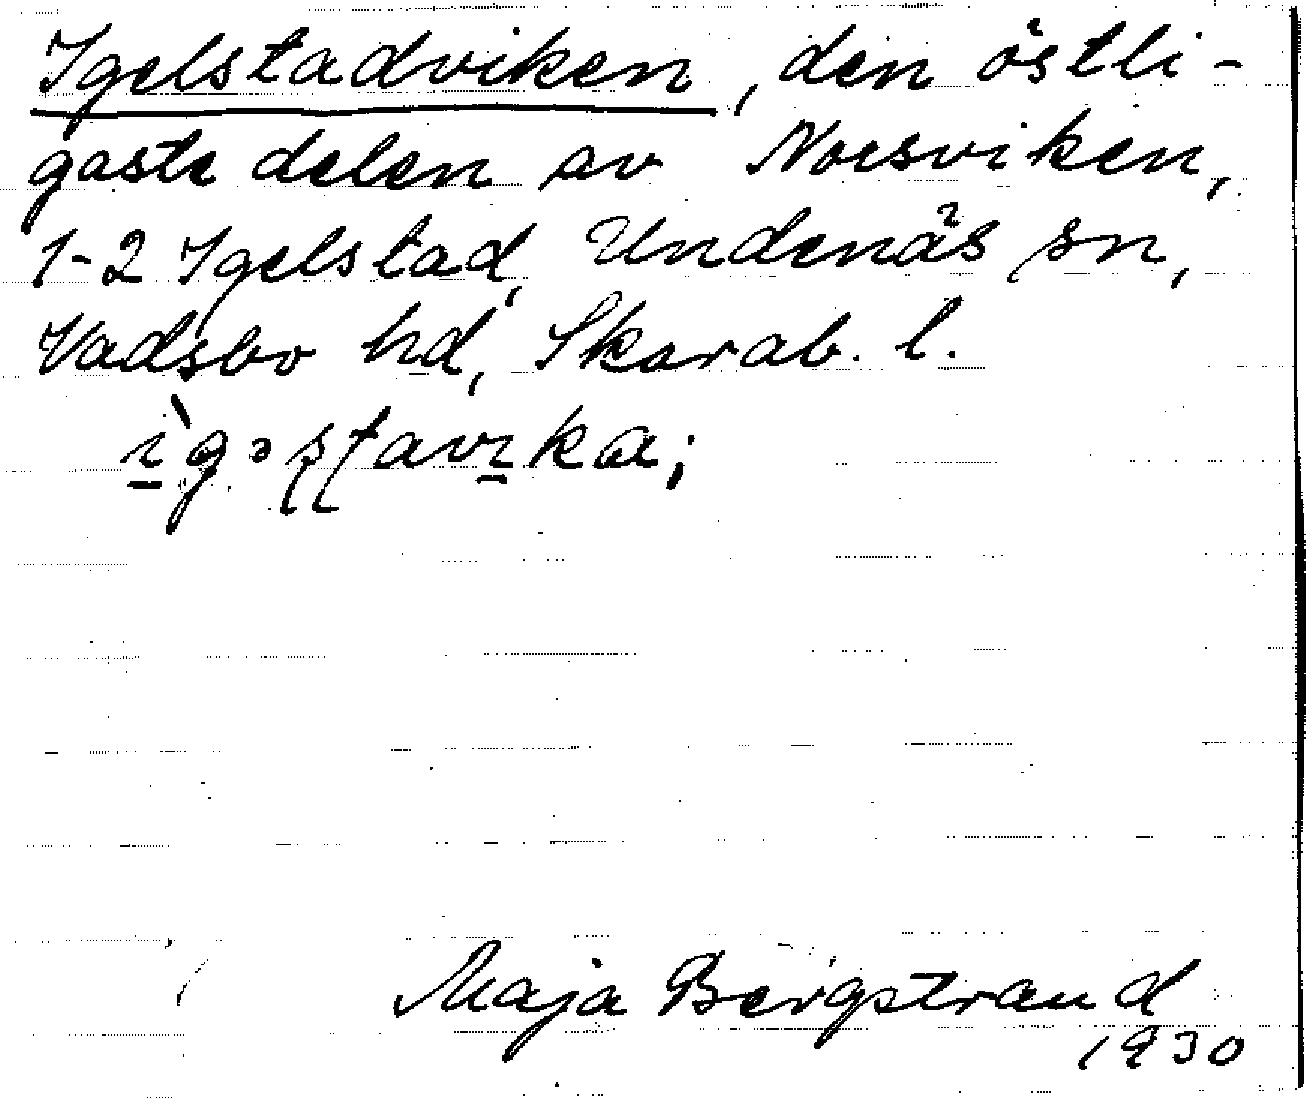 Igelstadviken, den östli-
gaste delen av Norsviken,
1-2 Igelstad, Undenäs sn,
Vadsbo hd, Skarab. l.
Maja Bergstrand
1930